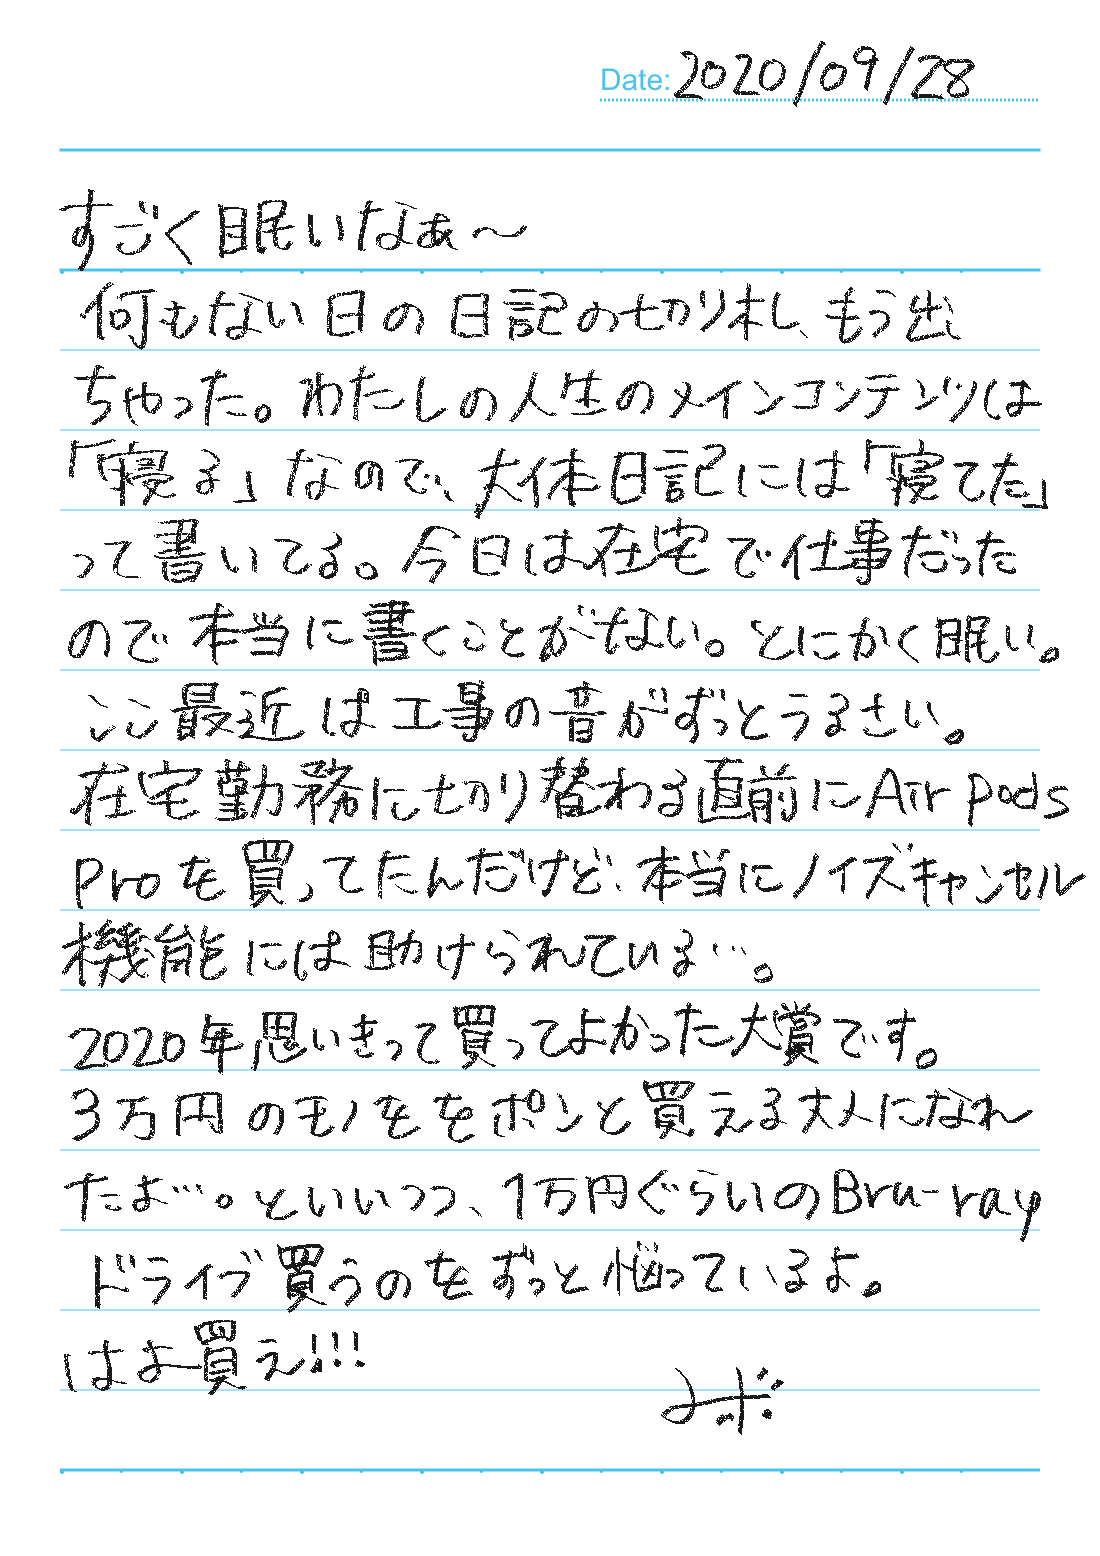 Date: 2020/09/28
すごく眠いなぁ～
何もない日の日記の切り札、もう出
ちゃった。わたしの人生のメインコンテンツは
「寝る」なので、大体日記には「寝てた」
って書いてる。今日は在宅で仕事だった
ので本当に書くことがない。とにかく眠い。
ここ最近は工事の音がずっとうるさい。
在宅勤務に切り替わる直前にAirpods
Proを買ってたんだけど、本当にノイズキャンセル
機能には助けられている…。
2020年思いきって買ってよかった大賞です。
3万円のモノををポンと買える大人になれ
たよ…。といいつつ、1万円ぐらいのBru-ray
ドライブ買うのをずっと悩っているよ。
はよ買え!!!